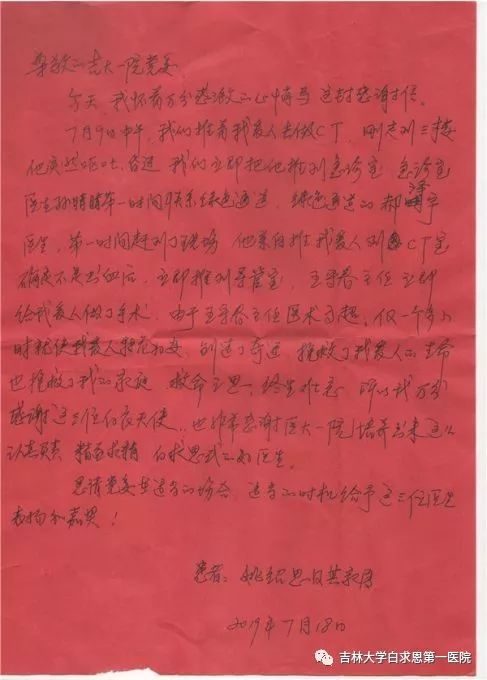 尊敬的吉大一院党委
今天，我怀着万分感激的心情写这封感谢信。
7月9日中午，我们推着我爱人去做CT，刚走到三楼
他突然呕吐、昏迷，我们立即把他推到急诊室，急诊室
医生孙晴晴第一时间联系绿色通道，绿色通道的郝泽宇
医生，第一时间赶到了现场，他亲自推我爱人到CT室
确定不是出血后，立即推到导管室，王守春主任立即
给我爱人做了手术，由于王守春主任医术高超，仅一个多小
时就使我爱人转危为安，创造了奇迹，挽救了我爱人的生命
也挽救了我的家庭，救命之恩，终生难忘，所以我万分
感谢这三位白衣天使，也非常感谢吉大一院培养出来这么
认真负责，精益求精，白求恩式的好医生。
恳请党委在适当的场合，适当的时机给予这三位医生
表扬和嘉奖！
患者：姚绍思及其家属
2019年7月18日
吉林大学白求恩第一医院